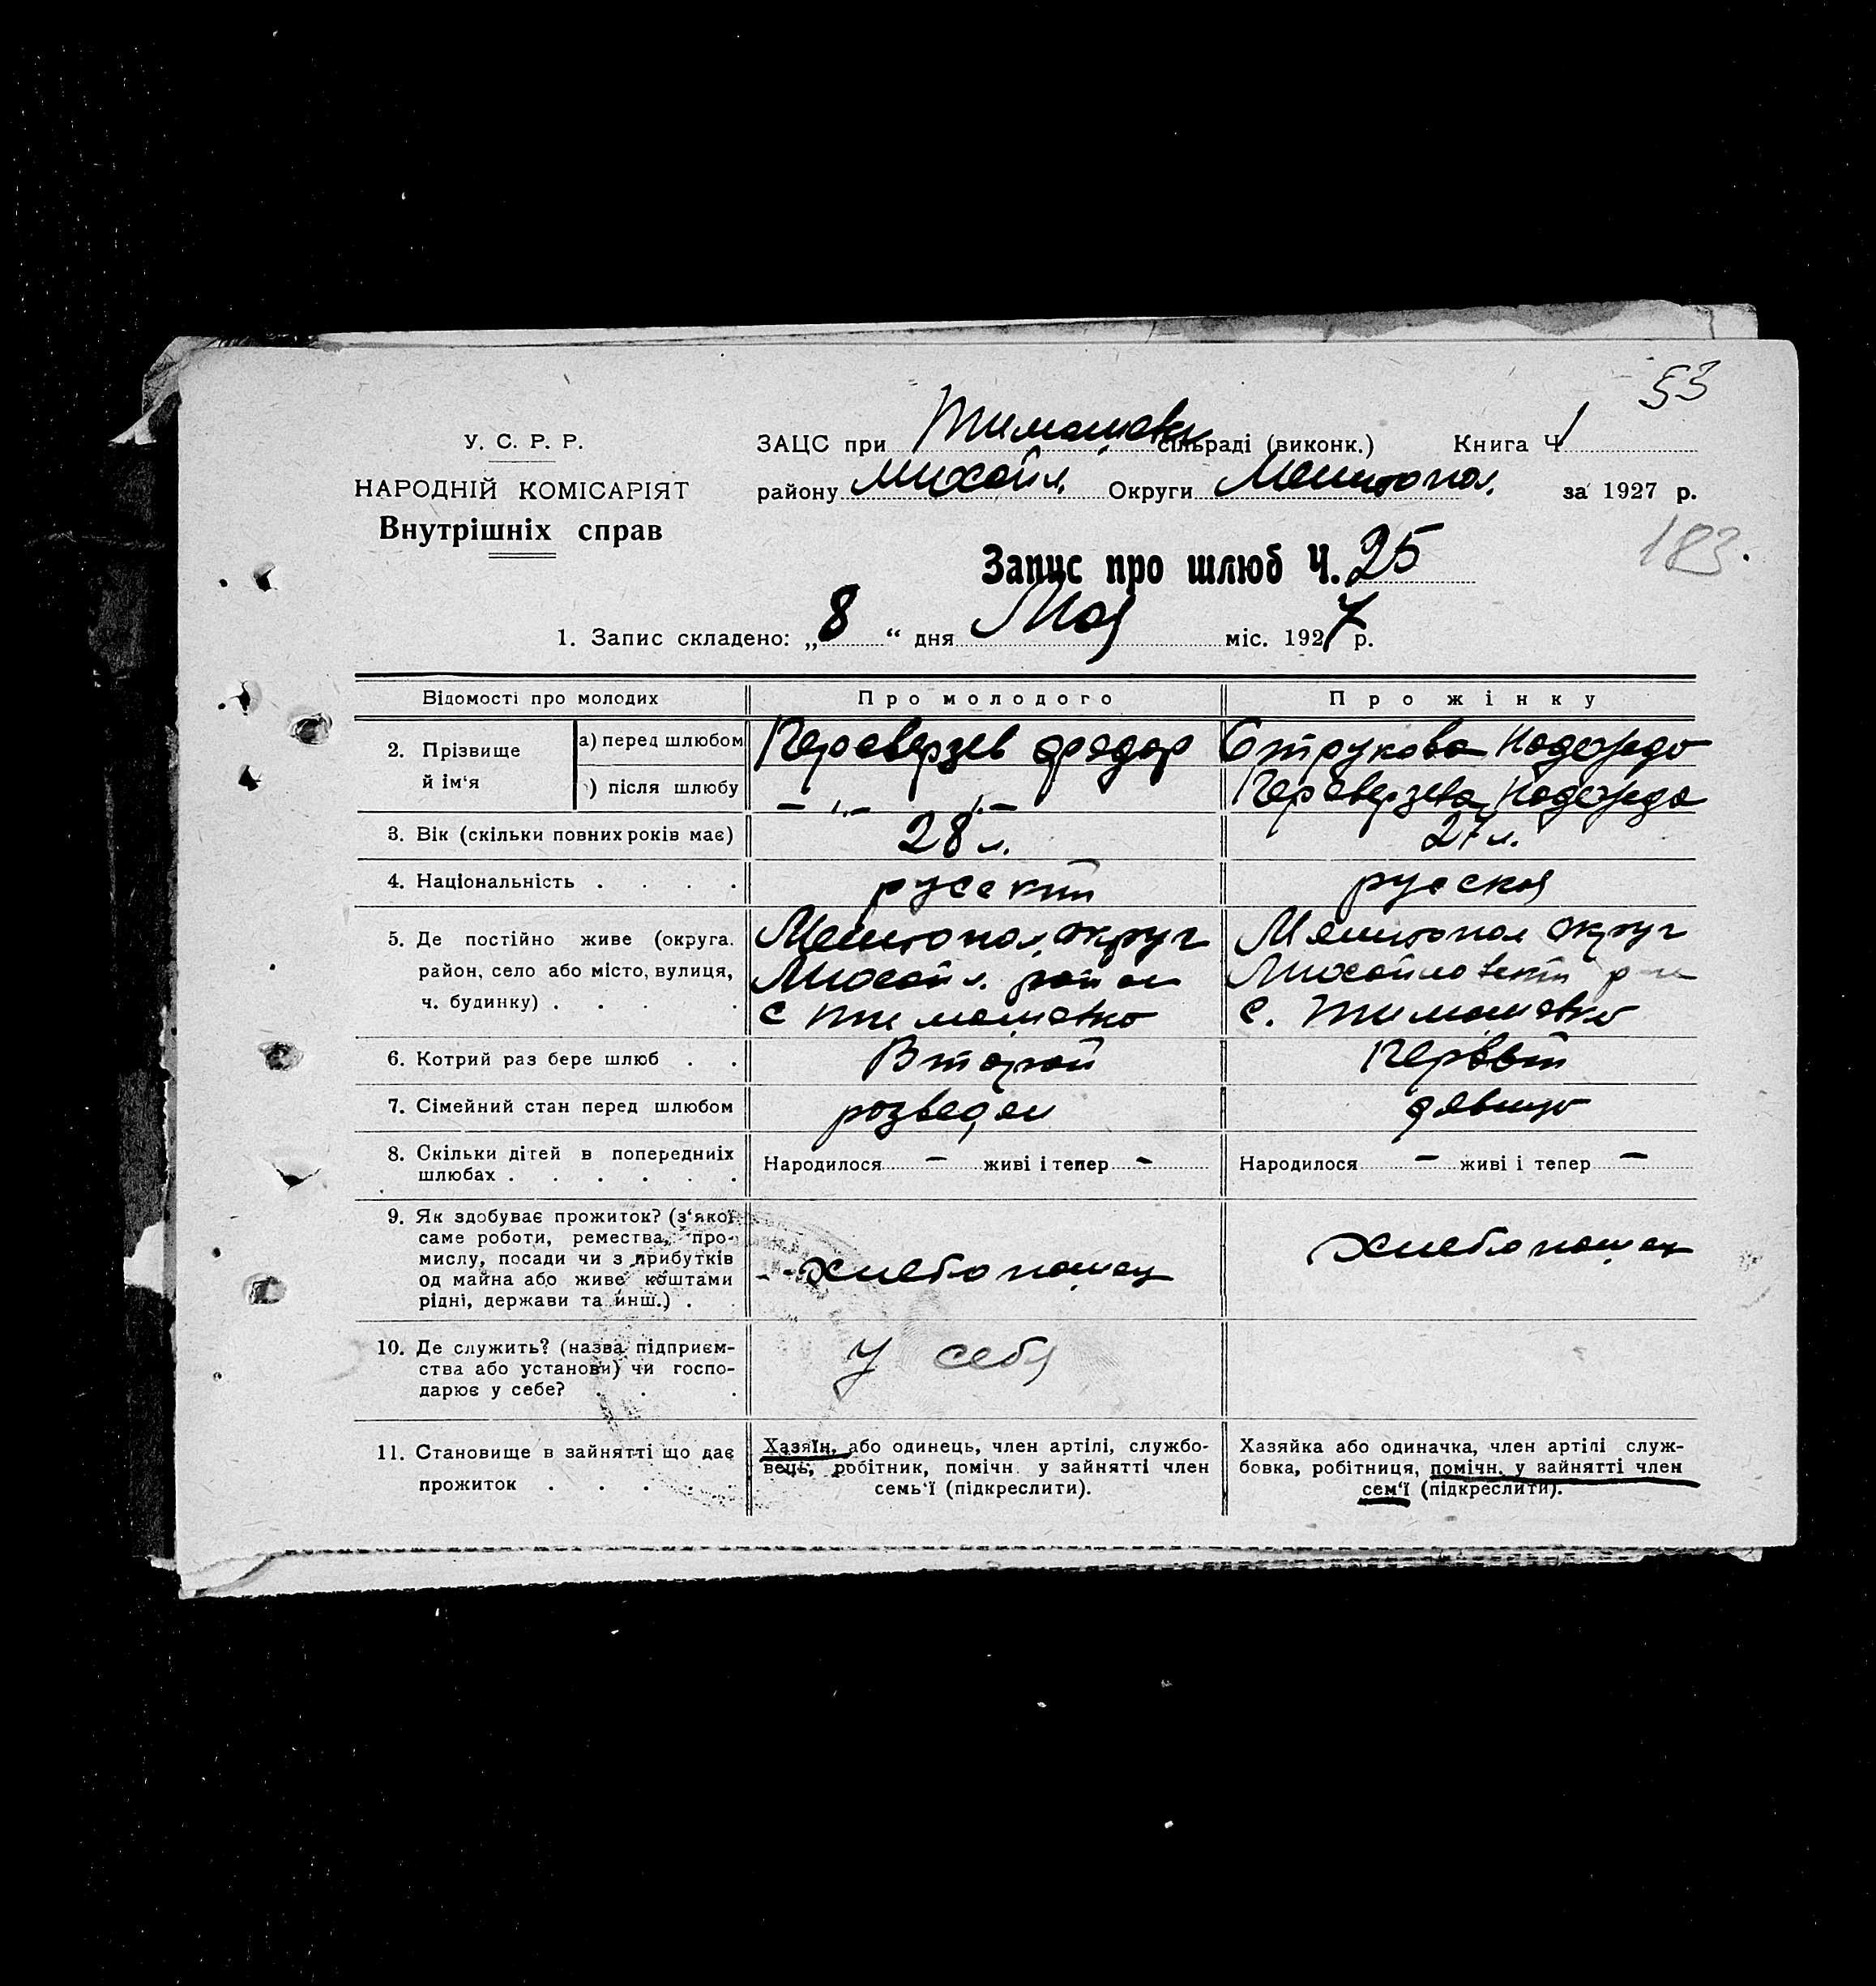 53
У. С. Р. Р.
НАРОДНІЙ КОМІСАРІЯТ
Внутрішніх справ
ЗАЦС при Тимашевк сільраді (виконк.) Книга Ч 1
району Михайл. Округи Мелитопол. за 1927 р.
183.
Запис про шлюб Ч. 25
1. Запис складено: „8“ дня Мая міс. 1927 р.
Відомості про молодих Про молодого Про жінку
2. Прізвище й ім‘я
а) перед шлюбом Переверзев Фядор Струкова Надежда
) після шлюбу –"– –"– Переверзева Надежда
3. Вік (скільки повних років має) 28 л. 27 л.
4. Національність . . . . русский русская
5. Де постійно живе (округа. Мелитопол округ Мелитопол округ
район, село або місто, вулиця, Михайл. район Михайловский р-н
ч. будинку) . . . . с Тимашевка с. Тимашевка
6. Котрий раз бере шлюб . . Второй Первый
7. Сімейний стан перед шлюбом розведен девица
8. Скільки дітей в попередниіх
шлюбах . . . . . .
Народилося – живі і тепер – Народилося – живі і тепер –
9. Як здобуває прожиток? (з‘якої
саме роботи, ремества, про-
мислу, посади чи з прибутків
од майна або живе коштами
рідні, держави та инш.) . .
хлебопашец хлебопашец
10. Де служить? (назва підприєм-
ства або установи) чи госпо-
дарює у себе? . . .
у себя
11. Становище в зайнятті що дає
прожиток . . . . .
Хазяїн, або одинець, член артілі, службо-
вець, робітник, помічн. у зайнятті член
семь‘ї (підкреслити).
Хазяйка або одиначка, член артілі служ-
бовка, робітниця, помічн. у зайнятті член
сем‘ї (підкреслити).